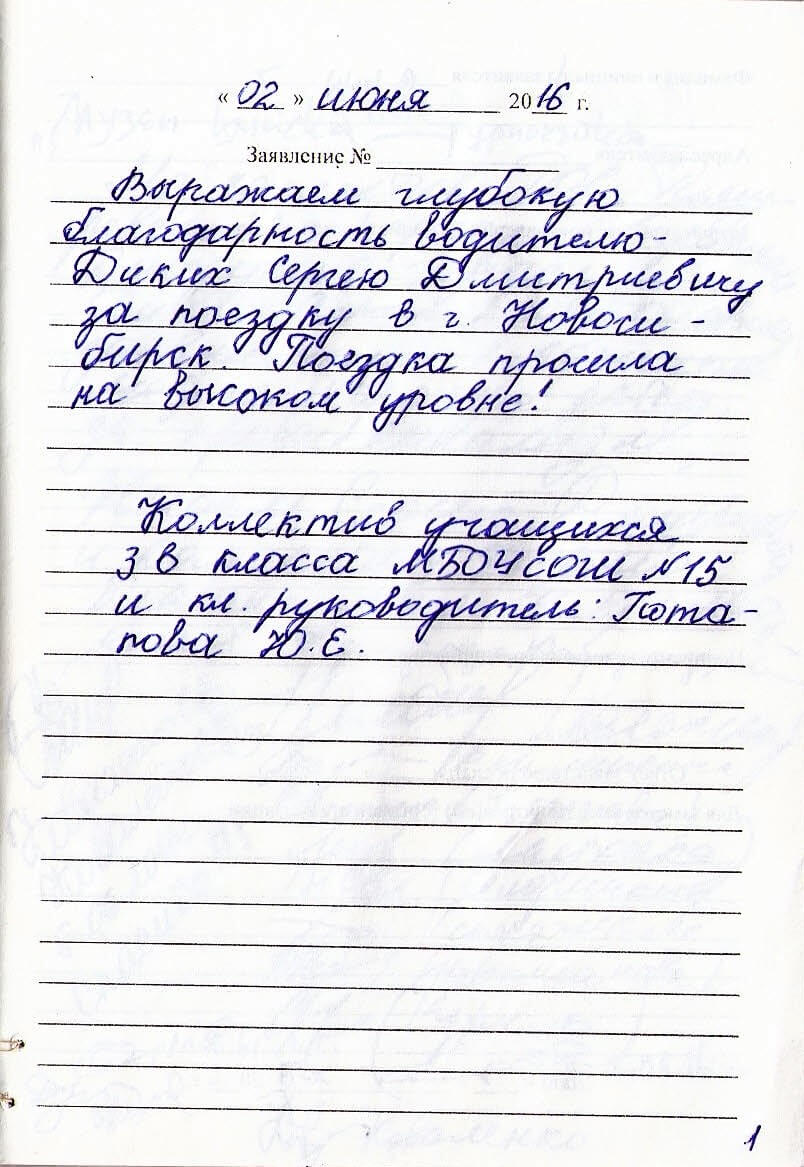 « 02 » июня 2016 г.
Заявление №
Выражаем глубокую
благодарность водителю-
Диких Сергею Дмитриевичу
за поездку в г. Новоси-
бирск. Поездка прошла
на высоком уровне!
Коллектив учащихся
3 в класса МБОУСОШ №15
и кл. руководитель: Пота-
пова Ю.Е.
1